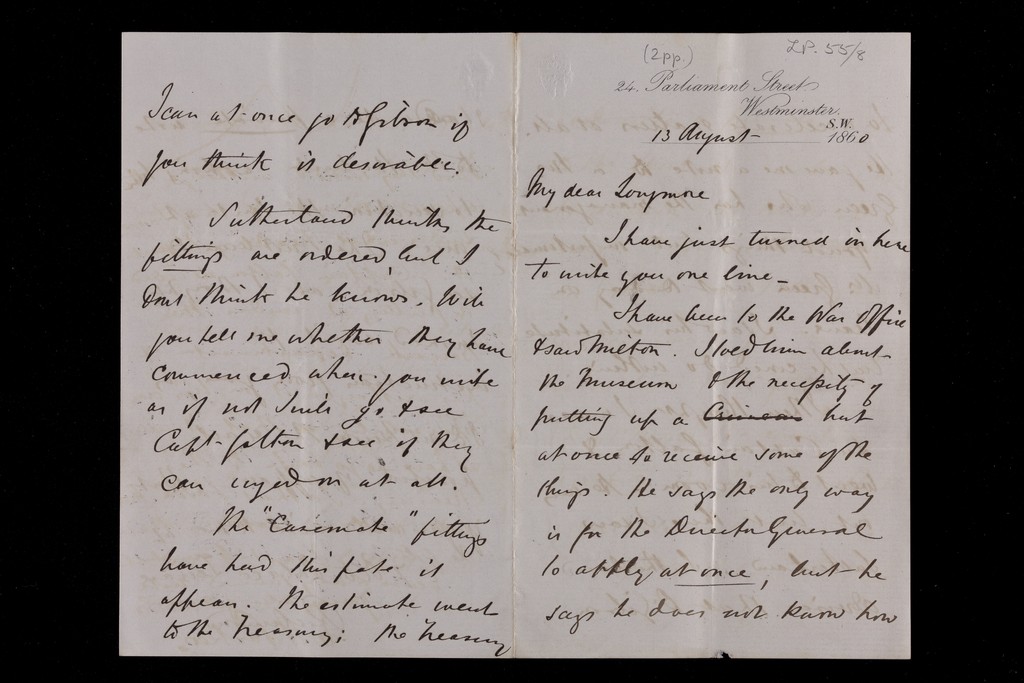 (2pp.)
LP. 55/8
24, Parliament Street,
Westminster.
S.W.
13 August 1860
My dear Longmore
I have just turned in here
to write you one line —
I have been to the War Office
& saw Milton. I told him about
the Museum & the necessity of
putting up a Crimean hut
at once to receive some of the
things. He says the only way
is for the Director General
to apply at once, but he
says he does not know how
I can at once go to Gibson if
you think it desirable.
Sutherland thinks the
fittings are ordered, but I
dont think he knows. Will
you tell me whether they have
commenced when you write
as if not I will go & see
Capt. Galton & see if they
can urged on at all.
The "Casemate" fittings
have had this fate it
appears. The estimate went
to the Treasury; the Treasury